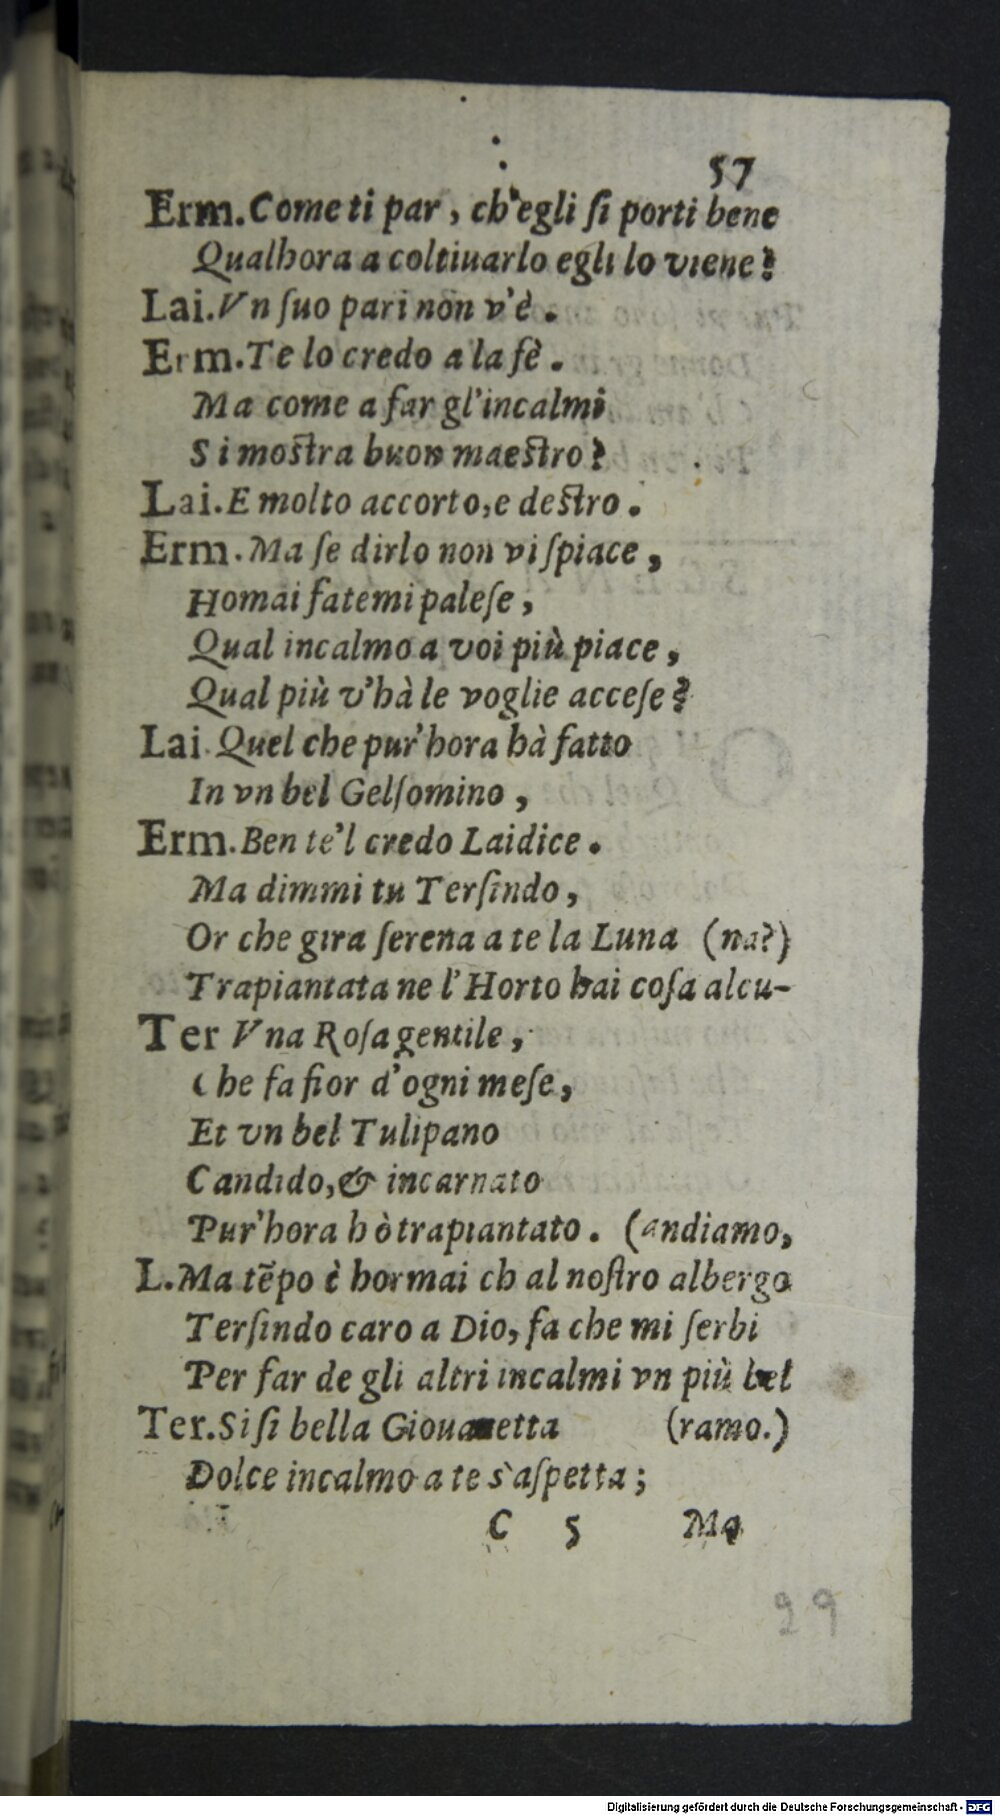 57
Erm. Come ti par, ch'egli ſi porti bene
Qualhora a coltiuarlo egli lo viene?
Lai. Vn ſuo pari non v'è.
Erm. Te lo credo a la fè.
Ma come a far gl'incalmi
Si moſtra buon maeſtro?
Lai. E molto accorto, e deſtro.
Erm. Ma ſe dirlo non vi ſpiace,
Homai fatemi paleſe,
Qual incalmo a voi più piace,
Qual più v'hà le voglie acceſe?
Lai. Quel che pur'hora hà fatto
In vn bel Gelſomino,
Erm. Ben te'l credo Laidice.
Ma dimmi tu Terſindo,
Or che gira ſerena a te la Luna (na?)
Trapiantata ne l'Horto hai coſa alcu-
Ter Vna Roſa gentile,
Che fa fior d'ogni meſe,
Et vn bel Tulipano
Candido, & incarnato
Pur'hora hò trapiantato. (andiamo,
L. Ma tẽpo è hormai ch al noſtro albergo
Terſindo caro a Dio, fa che mi ſerbi
Per far de gli altri incalmi vn più bel
Ter. Si ſi bella Giouanetta (ramo.)
Dolce incalmo a te s'aſpetta;
C 5 Ma
29
Digitalisierung gefördert durch die Deutsche Forschungsgemeinschaft - DFG